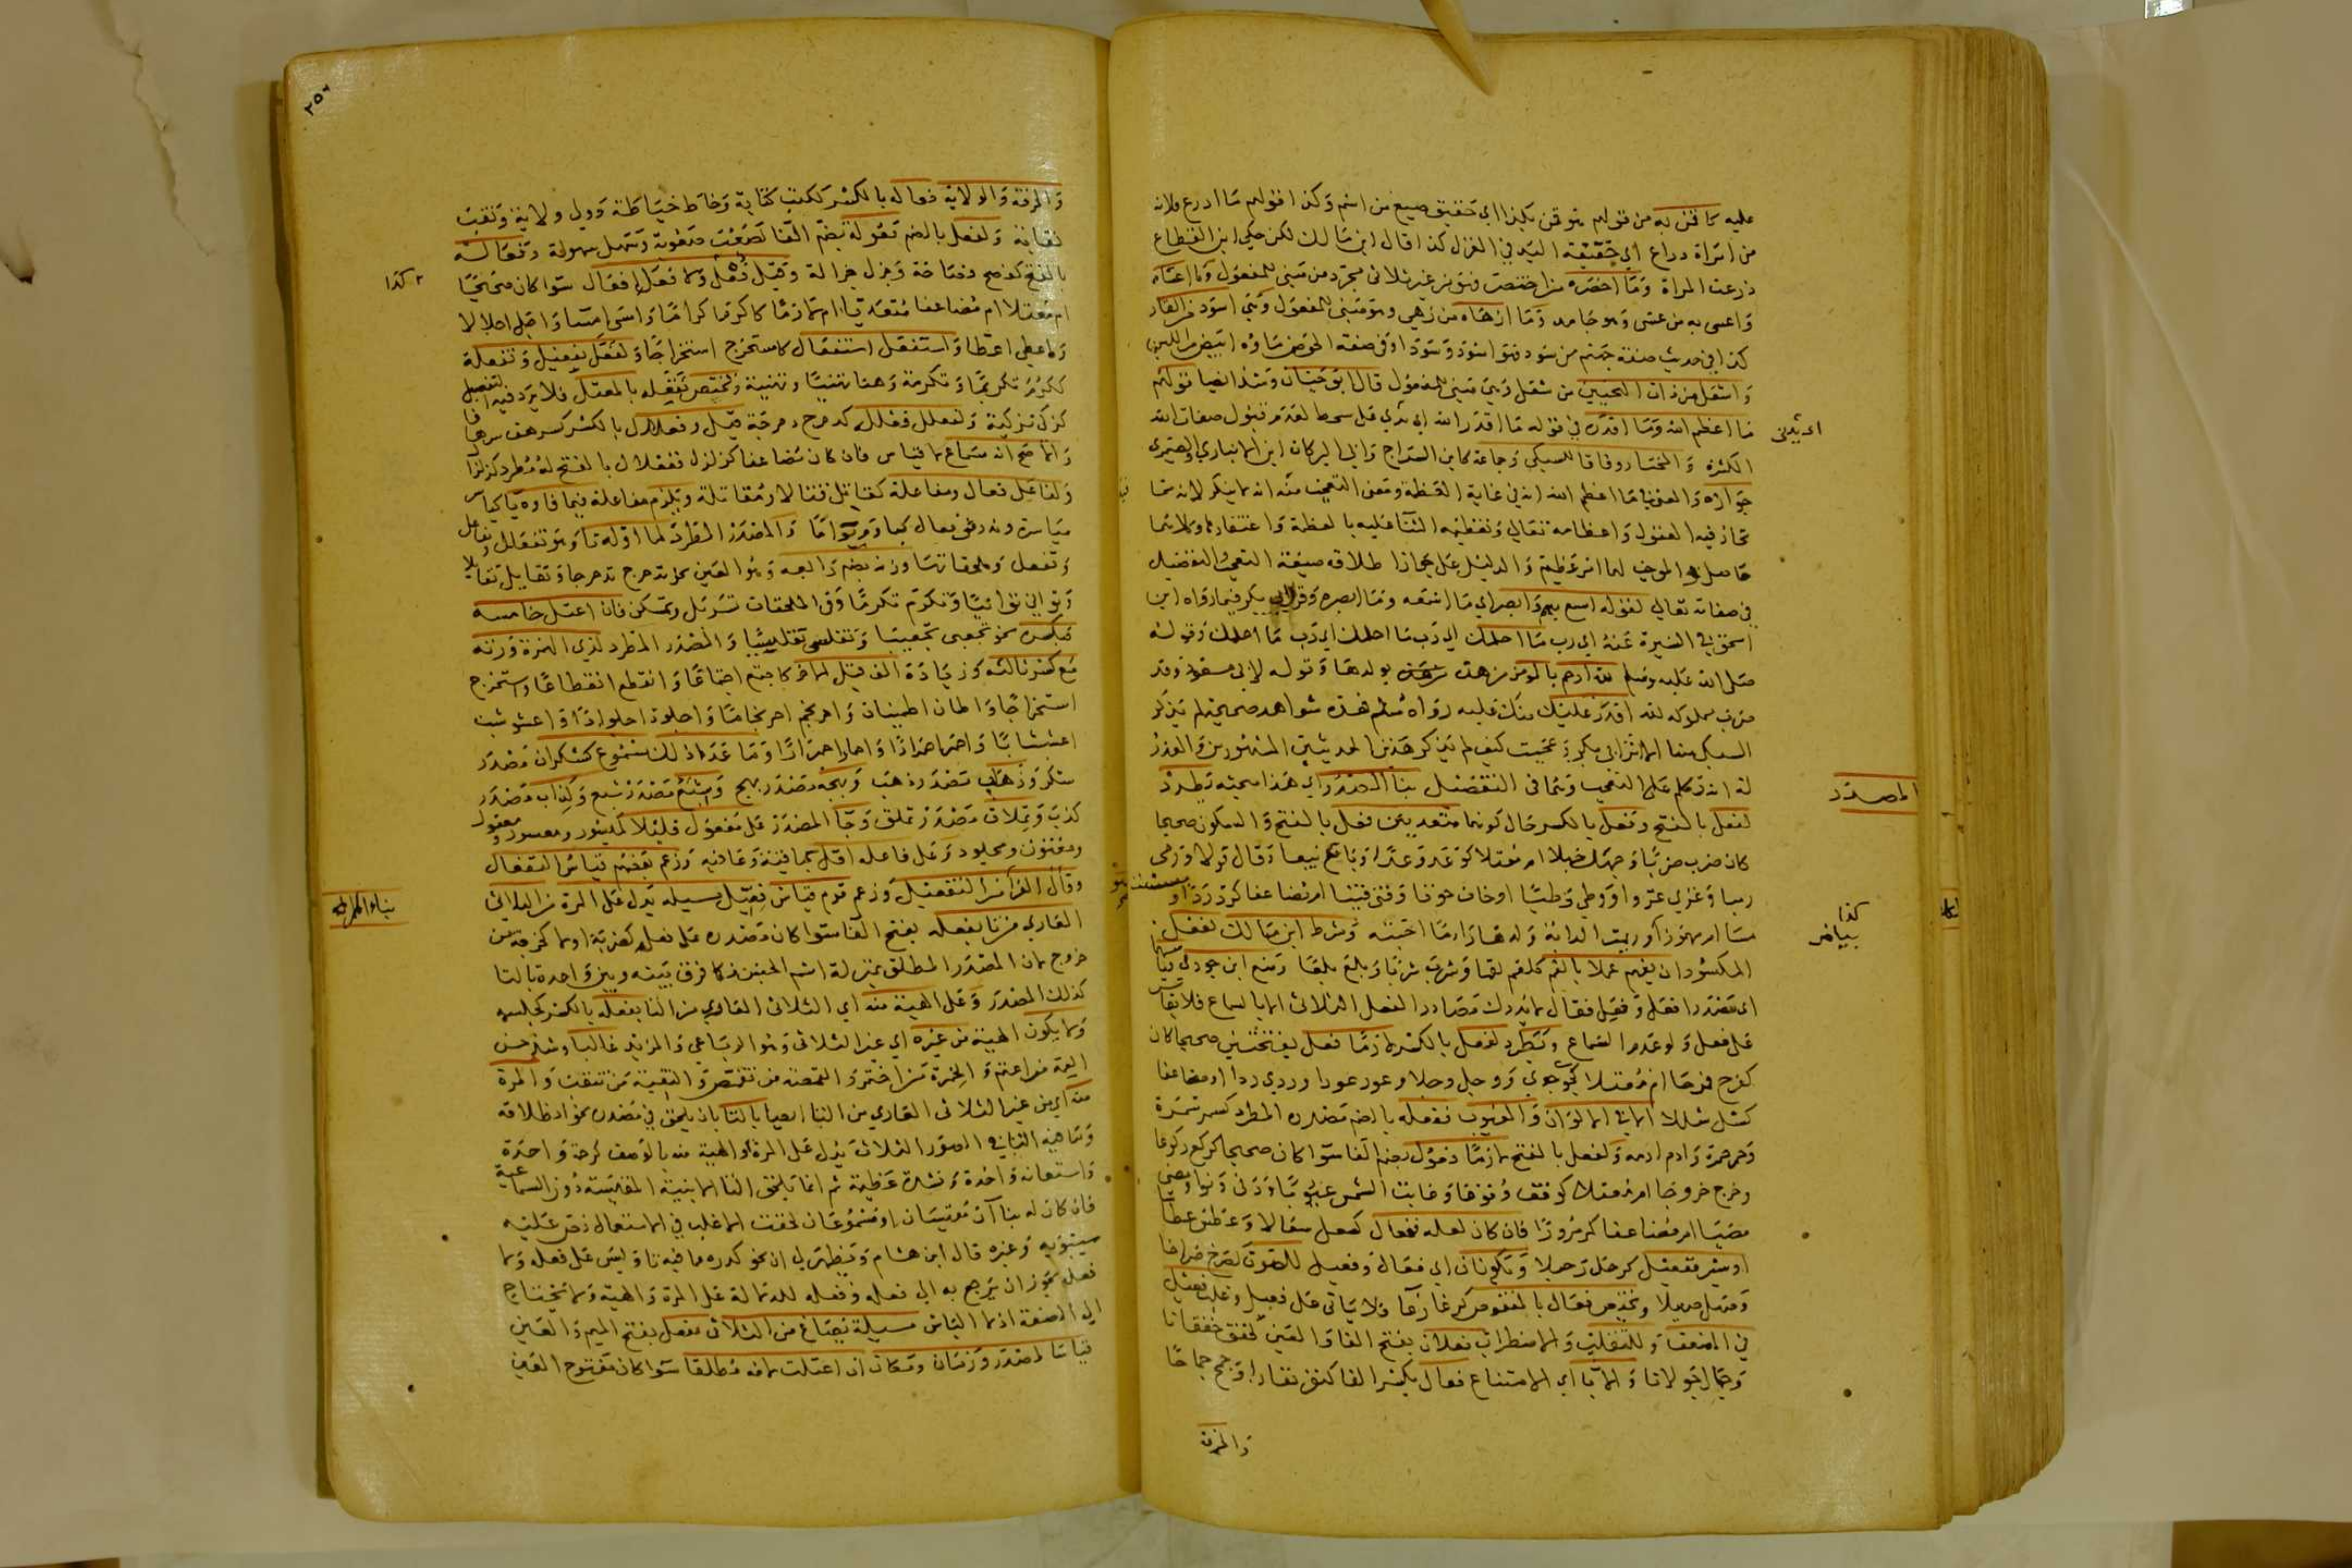 عليه كما قفن به من قولهم هو قمن بكذا اي حقيق صيغ من اسم وكذا قولهم ما اذرع فلانة
من امراة ذراع اي خفيفة اليد في الغزل كذا قال ابن مالك لكن حكى ابن القطاع
ذرعت المراة وما اخصره من اختصر فهو من غير ثلاثي مجرد من مبني للمفعول وما اعساه
واعسى به من عسى وهو جامد وما ازهاه من زهي وهو مبني للمفعول وهي اسود من القار
كذا في حديث صفة جهنم من سود فهو اسود وسودا وفي صفة الحوض ماؤه ابيض من اللبن
واشغل من ذات النحيين من شغل وهي مبني للمفعول قال ابو حيان وشذ ايضا قولهم
ما اعظم الله وما اقدره في قوله ما اقدر الله ان يدني على شحط لعدم قبول صفات الله
الكثرة والمختار وفاقا للسبكي وجماعة كابن السراج وابي البركات ابن الانباري والصيمري
جوازه والمعنى في ما اعظم الله انه في غاية العظمة ومعنى التعجب منه انه لا ينكر لانه مما
تحار فيه العقول واعظامه تعالى وتعظيمه الثنا عليه بالعظمة واعتقادها وكلاهما
حاصل والموجب لهما امر عظيم والدليل على جواز اطلاق صيغة التعجب والتفضيل
في صفاته تعالى لقوله اسمع بهم وابصر اي ما اسمعه وما ابصره وقول ابي بكر فيما رواه ابن
اسحق في السيرة عنه اي رب ما احلمك اي رب ما احلمك اي رب ما احلمك وقوله
صلى الله عليه وسلم لله ارحم بالمومن من هذه بولدها وقوله لابي مسعود وقد
ضرب مملوكه لله اقدر عليك منك عليه رواه مسلم فهذه شواهد صحيحة لم يذكر
السبكي منها الا اثر ابي بكر وعجبت كيف لم يذكر هذين الحديثين المشهورين والعذر
له انه تكلم على التعجب وهما في التفضيل بنا المصدر اي هذا مبحثه يطرد
لفعل بالفتح وفعل بالكسر حال كونهما متعديين فعل بالفتح والسكون صحيحا
كان ضرب ضربا وجهل جهلا ام معتلا كوعد وعدا وباع بيعا وقال قولا ورمى
رميا وغزي غزوا ووطي وطيا اوخاف خوفا وفني فنيا ام مضاعفا كرد ردا و
مسا ام مهموزا
المكسور ان يفهم عملا بالفم كلقم لقما وشرب شربا وبلع بلعا ومنع ابن جودي قياسهما
اي مصدر فعل وفعل فقال لا تدرك مصادر الفعل الثلاثي الا بالسماع فلا يقاس
على فعل ولو عدم السماع ويطرد لفعل بالكسر لازما فعل بفتحتين صحيحا كان
كفرح فرحا ام معتلا كجوي جوى ووجل وجلا وعور عورا وردي ردا ام مضاعفا
كشل شللا الا في الالوان والعيوب ففعلة بالضم مصدره المطرد كسمر سمرة
وحمر حمرة وادم ادمة ولفعل بالفتح لازما فعول بضم الفا سوا كان صحيحا كركع ركوعا
وخرج خروجا ام معتلا كوقف وقوفا وغابت الشمس غيوبا ودنى دنوا ومضى
مضيا ام مضاعفا كمر مرورا فان كان لعلة ففعال كسعل سعالا وعطس عطاسا
او سير ففعيل كرحل رحيلا ويكونان اي فعال وفعيل للصوت كصرخ صراخا
وصهل صهيلا ويختص فعال بالمنقوص كرغا رغا ولا ياتي على فعيل وغلب فعيل
في المضعف وللتقلب والاضطراب فعلان بفتح الفا والعين كخفق خفقانا
وجال جولانا والابا اي الامتناع فعال بكسر الفا كنفر نفارا وجمح جماحا
والحرفة
ان يدنى
المصدر
كذا
بياض
٢٥٢
والحرفة والولاية فعالة بالكسر ككتب كتابة وخاط خياطة وولي ولاية ونقب
نقابة ولفعل بالضم فعولة بضم الفا لصعب صعوبة وسهل سهولة وفعالة
بالفتح كفصح فصاحة وجزل جزالة وقيل فعل ولا فعل افعال سوا كان صحيحا
ام معتلا ام مضاعفا متعديا ام لازما كاكرم اكراما وامسى امساء واجل اجلالا
واعطى اعطا واستفعل استفعال كاستخرج استخراجا ولفعل تفعيل وتفعلة
ككرم تكريما وتكرمة وهنا تهنيا وتهنية وتختص تفعلة بالمعتل فلا يرد فيه التفعيل
كزكى تزكية ولفعلل فعللة كدحرج دحرجة قيل وفعلال بالكسر كسرهف سرهافا
والاصح انه سماع لا قياس فان كان مضاعفا كزلزل ففعلال بالفتح له مطرد كزلزالا
ولفاعل فعال ومفاعلة كقاتل قتالا ومقاتلة ويلزم مفاعلة فيما فاوه يا كياسر
مياسرة وندر في فعال كياوم يواما والمصدر المطرد لما اوله تا وهو تفعلل وتفاعل
وتفعل وملحقاتها وزنه بضم رابعه وهو العين نحو تدحرج تدحرجا وتقابل تقابلا
وتوانى توانيا وتكرم تكرما وفي الملحقات تسربل وتمسكن فان اعتل خامسه
فبكسره نحو تجعبى تجعبيا وتقلسى تقلسيا والمصدر المطرد لذي الهمزة وزنه
مع كسر ثالثه وزيادة الف قبل الاخر كاجتمع اجتماعا وانقطع انقطاعا واستخرج
استخراجا واطمان اطمينانا واحرنجم احرنجاما واجلوذ اجلواذا واعشوشب
اعشيشابا واحمر احمرارا واحمار احميرارا وما عدا ذلك مسموع كشكران مصدر
شكر وذهاب مصدر ذهب وبهجة مصدر بهج وشبع مصدر شبع وكذاب مصدر
كذب وتملاق مصدر تملق وجا المصدر على مفعول قليلا كميسور ومعسور ومعقول
ومفتون ومجلود وعلى فاعلة اقل كعافية وعاقبة وزعم بعضهم قياس التفعال
وقال الفرا من التفعيل وزعم قوم قياس فعيل مسيلة يدل على المرة من الثلاثي
العاري من تا بفعلة بفتح الفا سوا كان مصدره على فعل كضربة اولا كخرجة من
خروج لان المصدر المطلق بمنزلة اسم الجنس فكما فرق بينه وبين واحده بالتا
كذلك المصدر وعلى الهيئة منه اي الثلاثي العاري من التا بفعلة بالكسر كجلسة
ولا يكون الهيئة من غيره اي غير الثلاثي وهو الرباعي والمزيد غالبا وشذ حسن
العمة من اعتم والخمرة من اختمر والقمصة من تقمص والنقبة من تنقبت والمرة
منه اي من غير الثلاثي العاري من التا ايضا بالتا بان يلحق في مصدره نحو انطلاقة
وما فيه التا في الصور الثلاث يدل على المرة او الهيئة منه بالوصف كرحمة واحدة
واستعانة واحدة ونشدة عظيمة ثم انما يلحق التا الابنية المقيسة دون السماعية
فان كان له بناآن مقيسان او مسموعان لحقت الاغلب في الاستعمال نص عليه
سيبويه وغيره قال ابن هشام ويظهر لي ان نحو كدرة مما فيه تا وليس على فعلة ولا
فعلة يجوز ان يرجع به الى فعلة وفعلة للدلالة على المرة والهيئة ولا تحتاج
الى الصفة اذ لا الباس مسيلة يصاغ من الثلاثي مفعل بفتح الميم والعين
قياسا لمصدر وزمان ومكان ان اعتلت لامه مطلقا سوا كان مفتوح العين
كذا
بناء المرة